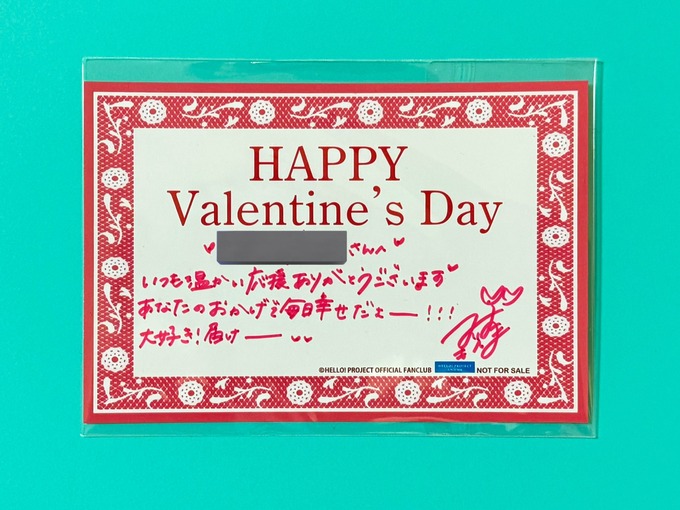 HAPPY
Valentine's Day
さんへ
いつも温かい応援ありがとうございます
あなたのおかげで毎日幸せだよー!!!
大好き!届けー
©HELLO! PROJECT OFFICIAL FANCLUB
NOT FOR SALE